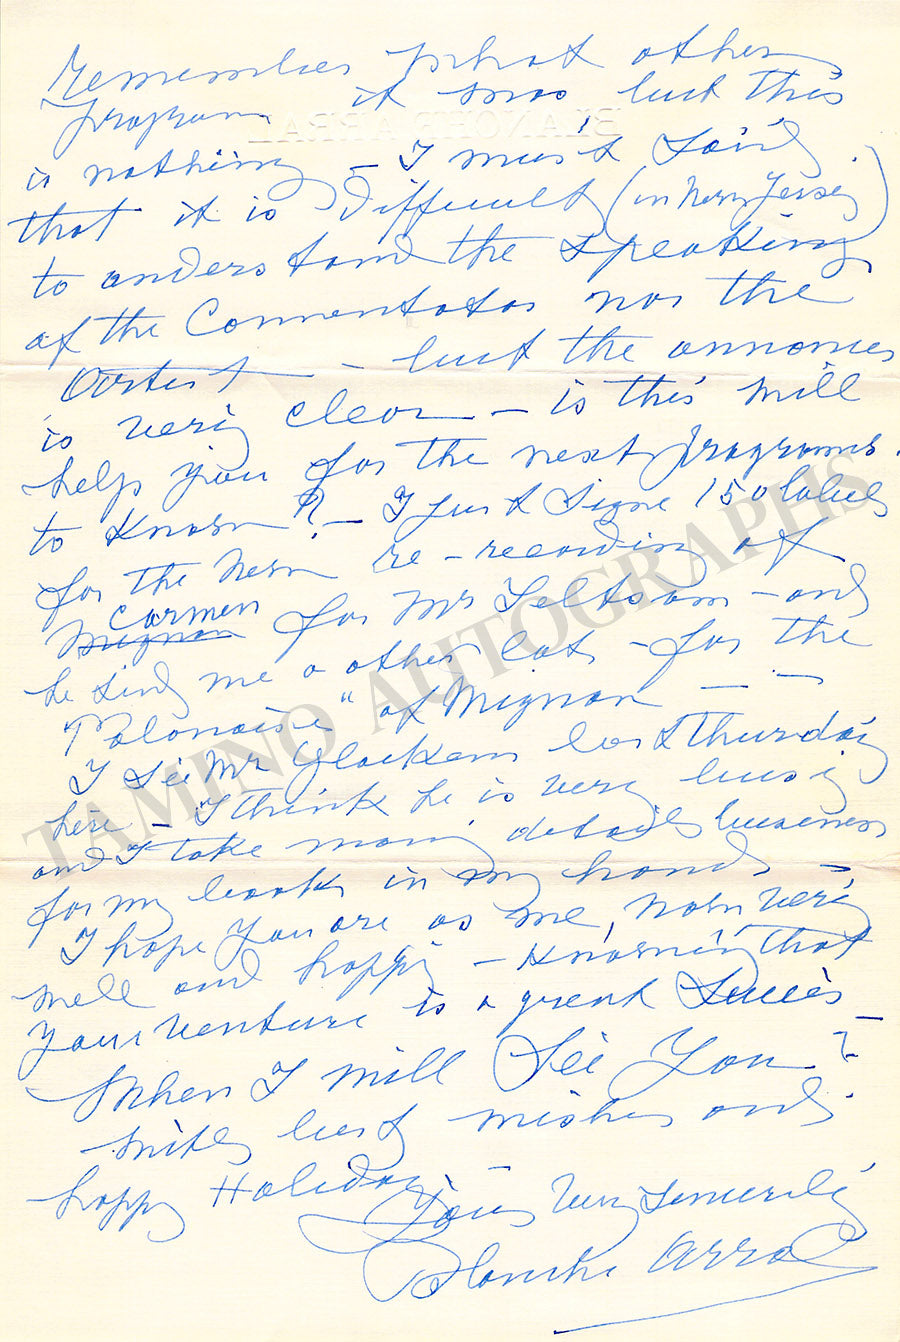 remember what other
program it was but this
is nothing – I must said
that it is difficult (in New Jersey)
to understand the speaking
of the Commentator nor the
Artist – – but the announces
is very clear – is this will
help you for the next programs.
to know? – I just signe 150 labels
for the new re-recording of
Carmen
Mignon for Mr Seltsam – and
he send me a other lot – for the
"Polonaise" of Mignon – –
I see Mr Glackens last thursday
here – I think he is very busy
and I take many details business
for my book in my hands –
I hope you are as me, now very
well and happy – Knowing that
your venture is a great succès –
When I will See You?
with best wishes and
happy Holiday –
Yours Very Sincerely
Blanche Arral
BLANCHE ARRAL
TAMINO AUTOGRAPHS